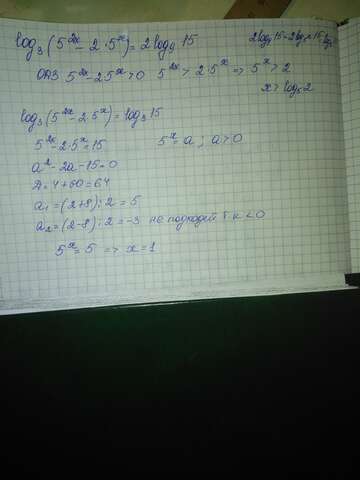 log₃(5²ˣ - 2·5ˣ) = 2log₉ 15
ОДЗ 5²ˣ - 2·5ˣ > 0 5²ˣ > 2·5ˣ => 5ˣ > 2
x > log₅2
log₃(5²ˣ - 2·5ˣ) = log₃15
5²ˣ - 2·5ˣ = 15 5ˣ = a ; a > 0
a² - 2a - 15 = 0
Д = 4 + 60 = 64
a₁ = (2+8):2 = 5
a₂ = (2-8):2 = -3 не подходит т к < 0
5ˣ = 5 => x = 1